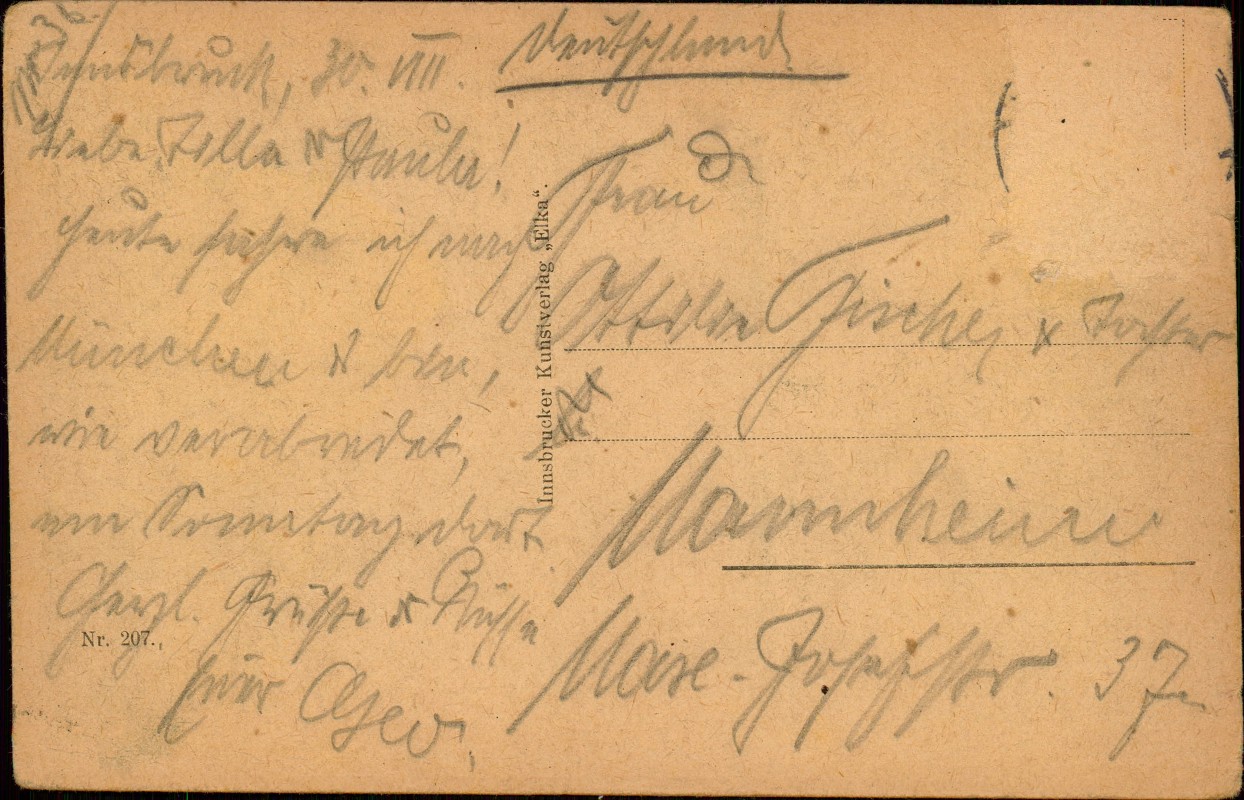 Innsbruck, 30. VIII.
Liebe Tilla & Paula!
heute fahre ich nach
München & bin,
wie verabredet,
am Sonntag dort.
Herzl. Grüße & Küsse
Euer Geo.
Nr. 207.
Innsbrucker Kunstverlag „Elka“.
Deutschland
Frau Dr
Ottilie Fischer & Tochter
Mannheim
Max-Josefstr. 37